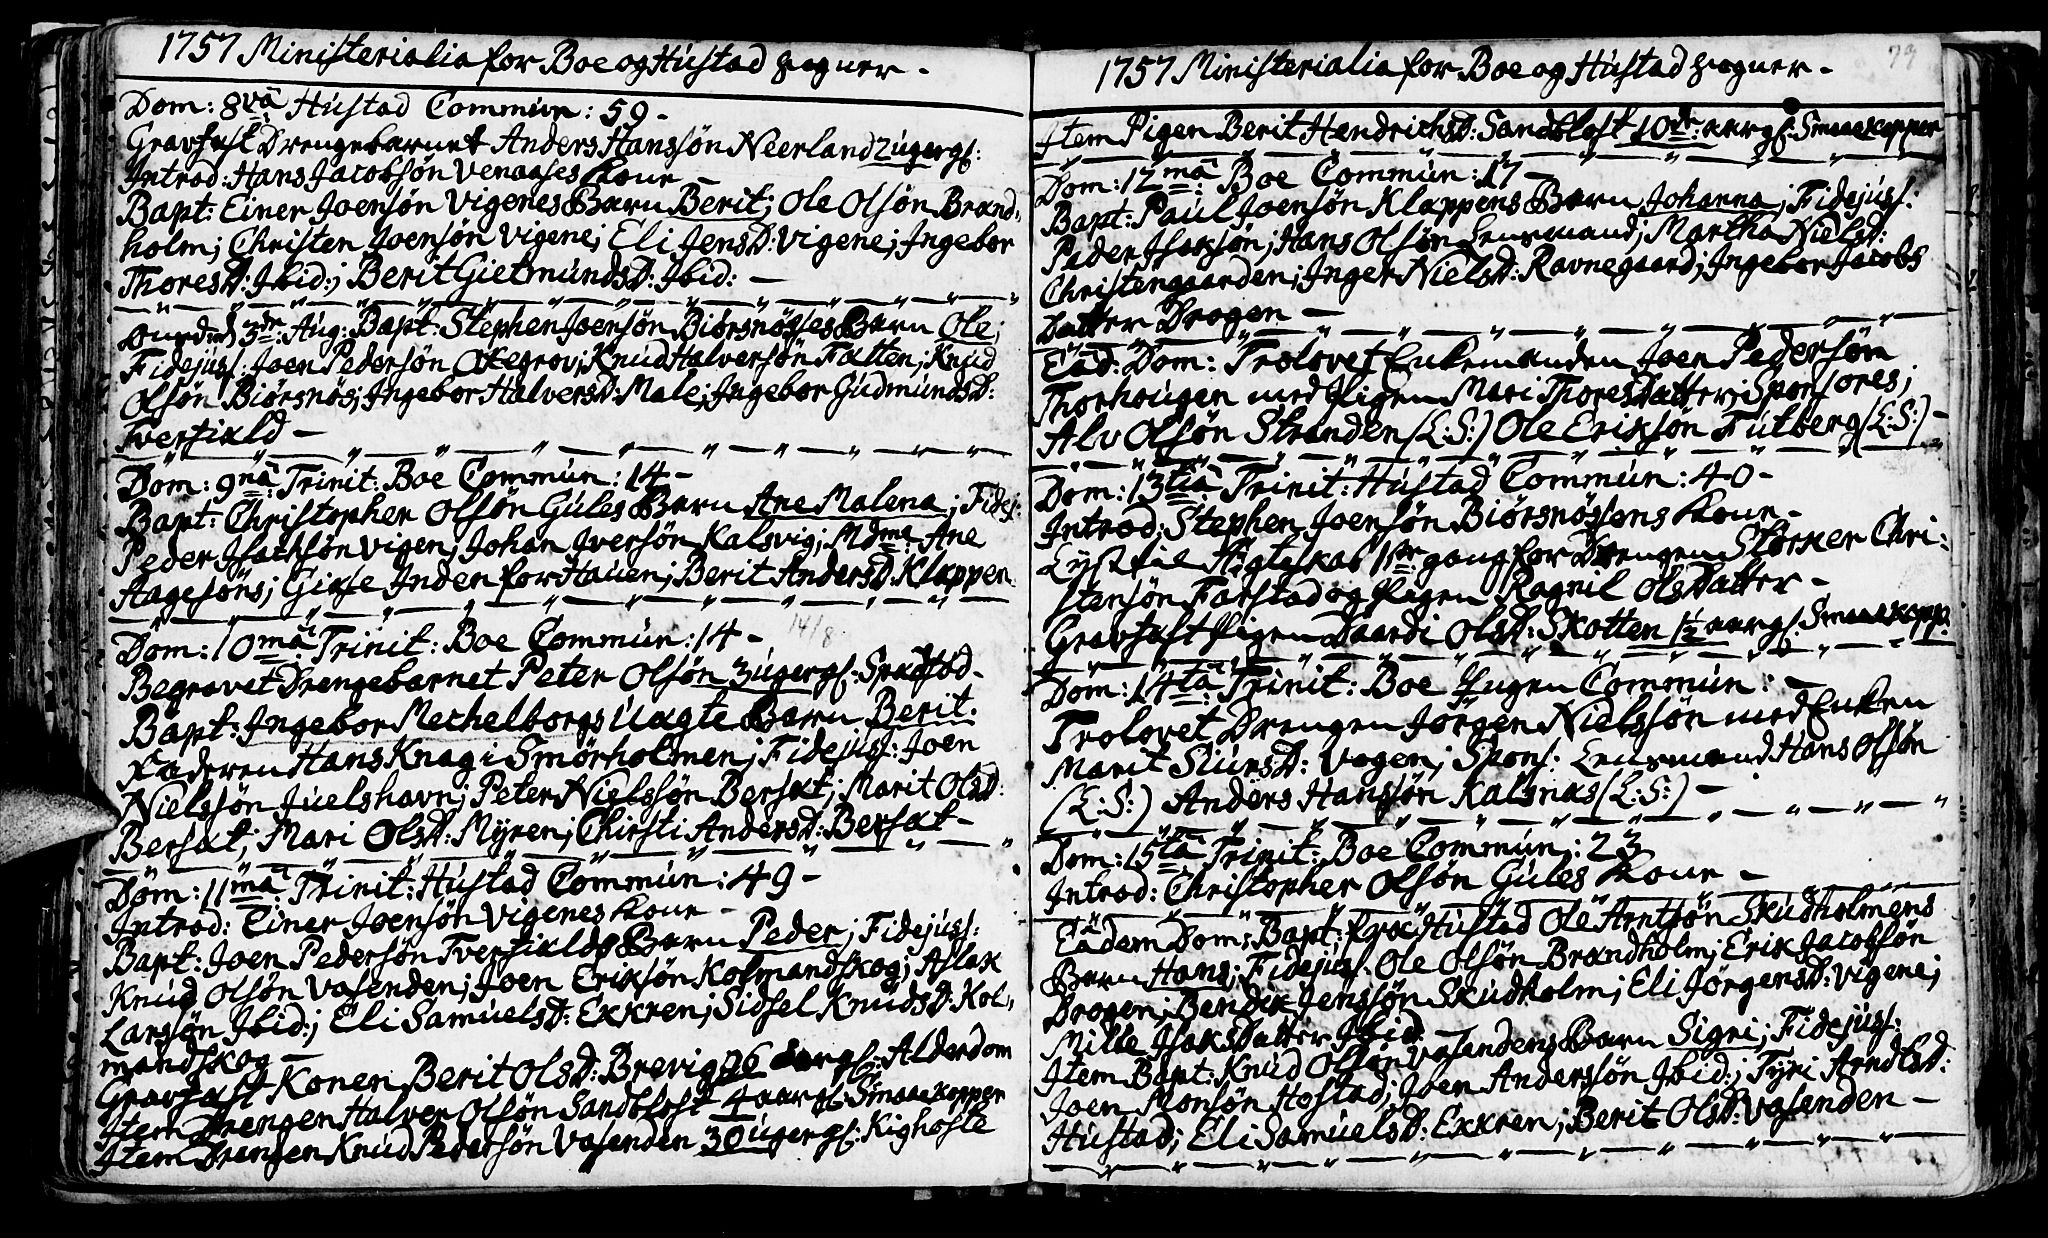 1757 Ministerialia for Boe og Hustad Sogner -
Dom: 8va Hustad Commun: 59 -
Gravfæst Drengebarnet Anders Hansøn Neerland 2 ugergl:
Introd: Hans Jacobsøn Venaases Kone -
Bapt: Einer Joensøn Vigenes Barn Berit; Ole Olsøn Brand-
holm; Christen Joensøn Vigene; Eli JensD: Vigene; Ingebor
ThoresD: Ibid:; Berit GietmundsD: Ibid: -
3de Aug: Bapt: Stephen Joensøn Biørsnøsses Barn Ole;
Fidejuss: Joen Pedersøn Oxegrov; Knud Halversøn Tatten; Knud
Olsøn Biørsnøs; Ingebor HalversD: Male; Ingebor GudmundsD:
Tverfiæld -
Dom: 9na Trinit: Boe Commun: 14 -
Bapt: Christopher Olsøn Gules Barn Ane Malena; Fidej:
Peder Isachsøn Vigen; Johan Iversøn Kalsvig; Mdme Ane
Hagesøns; Gidse Indenfor Hauen; Berit AndersD: Klappen
14/8
Dom: 10ma Trinit: Boe Commun: 14 -
Begravet Drengebarnet Peter Olsøn 3 ugergl:
Bapt: Ingebor Mechelborgs uægte Barn Berit.
Faderen Hans Knag i Smørholmen; Fidejuss: Joen
Nielssøn Juelshavn; Peter Nielssøn Bersæt; Marit OlsD:
Bersæt; Mari OlsD: Myren; Chirsti AndersD: Bersæt -
Dom: 11ma Trinit: Hustad Commun: 49 -
Introd: Einer Joensøn Vigenes Kone -
Bapt: Joen Pedersøn Tverfialds Barn Peder; Fidejuss:
Knud Olsøn Vasenden; Joen Eriksøn Kolmandskog; Aslak
Larssøn Ibid:; Eli SamuelsD: Exkren; Sidsel KnudsD: Kol-
mandskog -
Gravfæst Konen Berit OlsD: Brevig 96 aargl: Alderdom
Item Drengen Halver Olsøn Sandblost 4 aargl: Smaaekopper
Item Drengen Knud Pedersøn Vasenden 30 ugergl: Kighoste
1757 Ministerialia for Boe og Hustad Sogner -
Item Pigen Berit HendrichsD: Sandblost 10de aargl: Smaaekopper
Dom: 12ma Boe Commun: 17 -
Bapt: Paul Joensøn Klappens Barn Johanna; Fidejuss:
Peder Isaksøn; Hans Olsøn Lensmand; Martha NielsD:
Christengaarden; Inger NielsD: Ravnegaard; Ingebor Jacobs
Datter Drogen -
Ead: Dom: Trolovet Enkemanden Joen Pedersøn
Thorhougen med Pigen Mari Thores Datter; Sponsores;
Alv Olsøn Stranden (L:S:) Ole Eriksøn Futberg (L:S:) -
Dom: 13tia Trinit: Hustad Commun: 40 -
Introd: Stephen Joensøn Biørsnøssens Kone -
Lyst til Ægteskab 1ste gang for Drengen Størker Chri-
stensøn Farstad og Pigen Ragnil Ols Datter -
Gravfæst Pigen Baardi OlsD: Skotten 1½ aargl: Smaaekopp:
Dom: 14ta Trinit: Boe Ingen Commun: -
Trolovet Drengen Jørgen Nielssøn med Enken
Marit SiursD: Vogen; Spons: Lensmand Hans Olsøn
(L:S:) Anders Hansøn Kalsnæs (L:S:) -
Dom: 15ta Trinit: Boe Commun: 23
Introd: Christopher Olsøn Gules Kone -
Eadem Dom: Bapt: fra Hustad Ole Arntsøn Skudholmens
Barn Hans; Fidejuss: Ole Olsøn Brandholm; Erik Jacobsøn
Drogen; Bendix Jenssøn Skudholm; Eli JørgensD: Vigene;
Mille Isaks Datter Ibid: -
Item Bapt: Knud Olsøn Vasendens Barn Sigri; Fidejuss:
Joen Monsøn Hostad; Joen Anderssøn Ibid:; Tyri ArndtsD:
Hustad; Eli SamuelsD: Exkren; Berit OlsD: Vasenden -